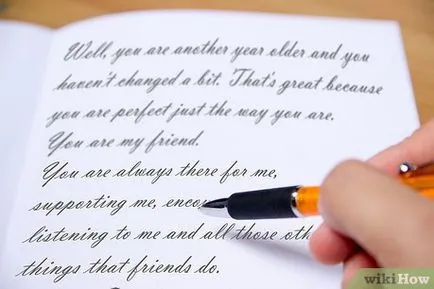 Well, you are another year older and you
haven't changed a bit. That's great because
you are perfect just the way you are.
You are my friend.
You are always there for me,
supporting me,
listening to me and all those
things that friends do.
wikiHow